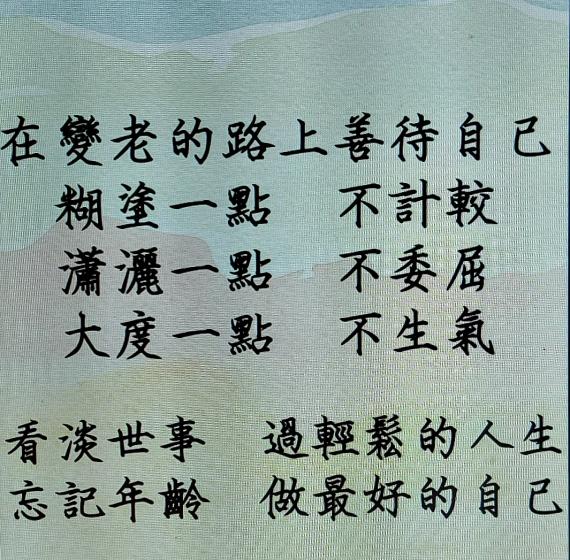 在變老的路上善待自己
糊塗一點 不計較
瀟灑一點 不委屈
大度一點 不生氣
看淡世事 過輕鬆的人生
忘記年齡 做最好的自己